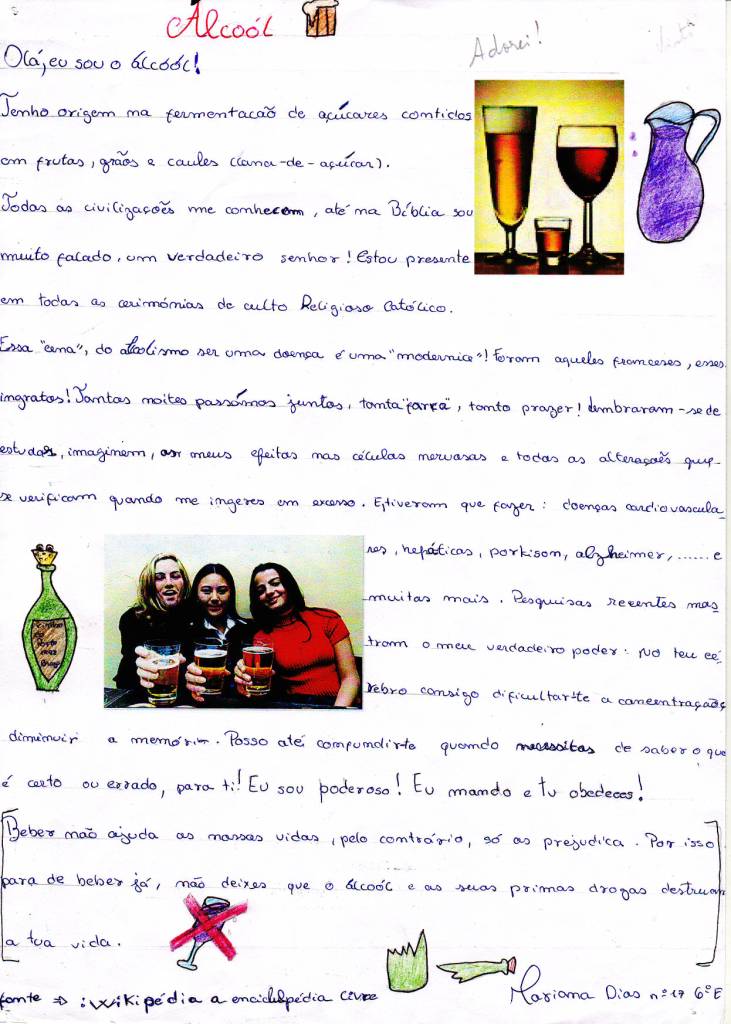 Álcoól
Adorei!
Olá, eu sou o álcoól!
Tenho origem na fermentacão de açúcares contidos
em frutas, grãos e caules (cana-de-açúcar).
Todas as civilizações me conhecem, até na Bíblia sou
muito falado, um verdadeiro senhor! Estou presente
em todas as cerimónias de culto Religioso Católico.
Essa "cena", do alcolismo ser uma doença é uma "modernice"! Foram aqueles franceses, esses
ingratos! Tantas noites passámos juntos, tanta "farra", tanto prazer! Lembraram-se de
estudar, imaginem, os meus efeitos nas células nervosas e todas as alterações que
se verificam quando me ingeres em excesso. E, tiveram que fazer: doenças cardiovascula_
res, hepáticas, parkison, alzheimer, ...... e
muitas mais. Pesquisas recentes mos
tram o meu verdadeiro poder: No teu cé_
rebro consigo dificultar-te a concentração,
diminuir a memória. Posso até confundir-te quando necessitas de saber o que
é certo ou errado, para ti! Eu sou poderoso! Eu mando e tu obedeces!
Beber não ajuda as nossas vidas, pelo contrário, só as prejudica. Por isso
para de beber já, não deixes que o álcoól e as suas primas drogas destruam
a tua vida.
fonte => : Wikipédia a enciclopédia livre
Mariana Dias nº 17 6º E